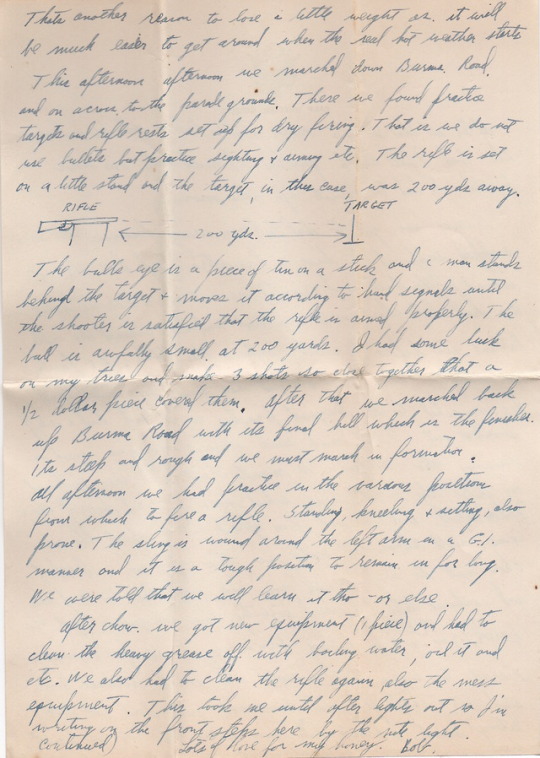 Thats another reason to lose a little weight as it will
be much easier to get around when the real hot weather starts
This afternoon afternoon we marched down Burma Road
and on across to the parade grounds. There we found practice
targets and rifle rests set up for dry firing. That is we do not
use bullets but practice sighting + aiming etc. The rifle is set
on a little stand and the target, in this case, was 200 yds away.
RIFLE TARGET
200 yds.
The bulls eye is a piece of tin on a stick and a man stands
behind the target + moves it according to hand signals until
the shooter is satisfied that the rifle is aimed properly. The
bull is awfully small at 200 yards. I had some luck
on my tries and 3 shots so close together that a
1/2 dollar piece covered them. After that we marched back
up Burma Road with its final hill which is the finisher.
Its steep and rough and we must march in formation.
All afternoon we had practice in the various positions
from which to fire a rifle. Standing, kneeling + sitting, also
prone. The sling is wound around the left arm in a G.I.
manner and it is a tough position to remain in for long.
We were told that we will learn it tho - or else
after chow. we got new equipment (1 piece) and had to
clean the heavy grease off with boiling water, oil it and
etc. We also had to clean the rifle again, also the mess
equipment. This took me until after lights out so I'm
writing on the front steps here by the nite light.
Continued) Lots of love for my honey. Bob.